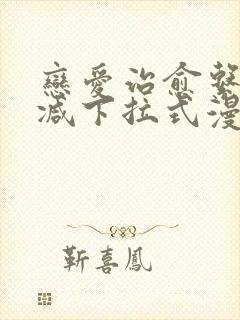 戀愛治愈繫
减下拉式漫
靳喜鳳